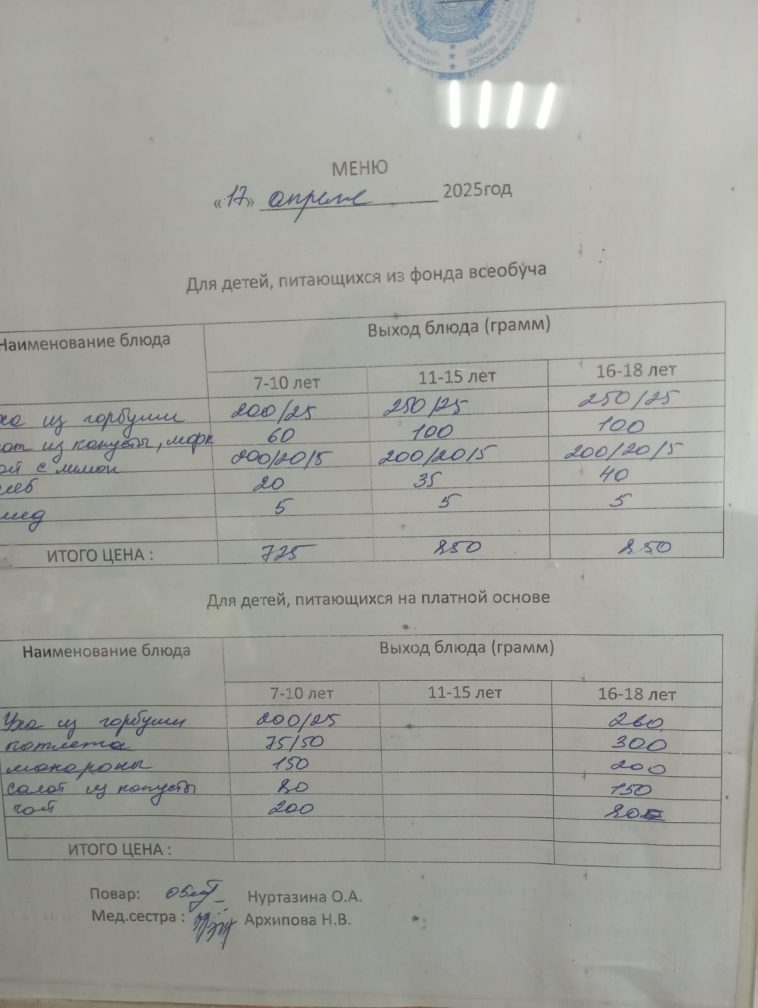 МЕНЮ
«17» апреля 2025год
Для детей, питающихся из фонда всеобуча
Наименование блюда Выход блюда (грамм)
7-10 лет 11-15 лет 16-18 лет
уха из горбуши 200/25 250/25 250/25
из капусты, морк 60 100 100
с лимон 200/20/5 200/20/5 200/20/5
хлеб 20 35 40
мед 5 5 5
ИТОГО ЦЕНА : 775 850 850
Для детей, питающихся на платной основе
Наименование блюда Выход блюда (грамм)
7-10 лет 11-15 лет 16-18 лет
Уха из горбуши 200/25 260
котлета 75/50 300
макароны 150 200
салат из капусты 80 150
чай 200 80
ИТОГО ЦЕНА :
Повар: Нуртазина О.А.
Мед.сестра : Архипова Н.В.